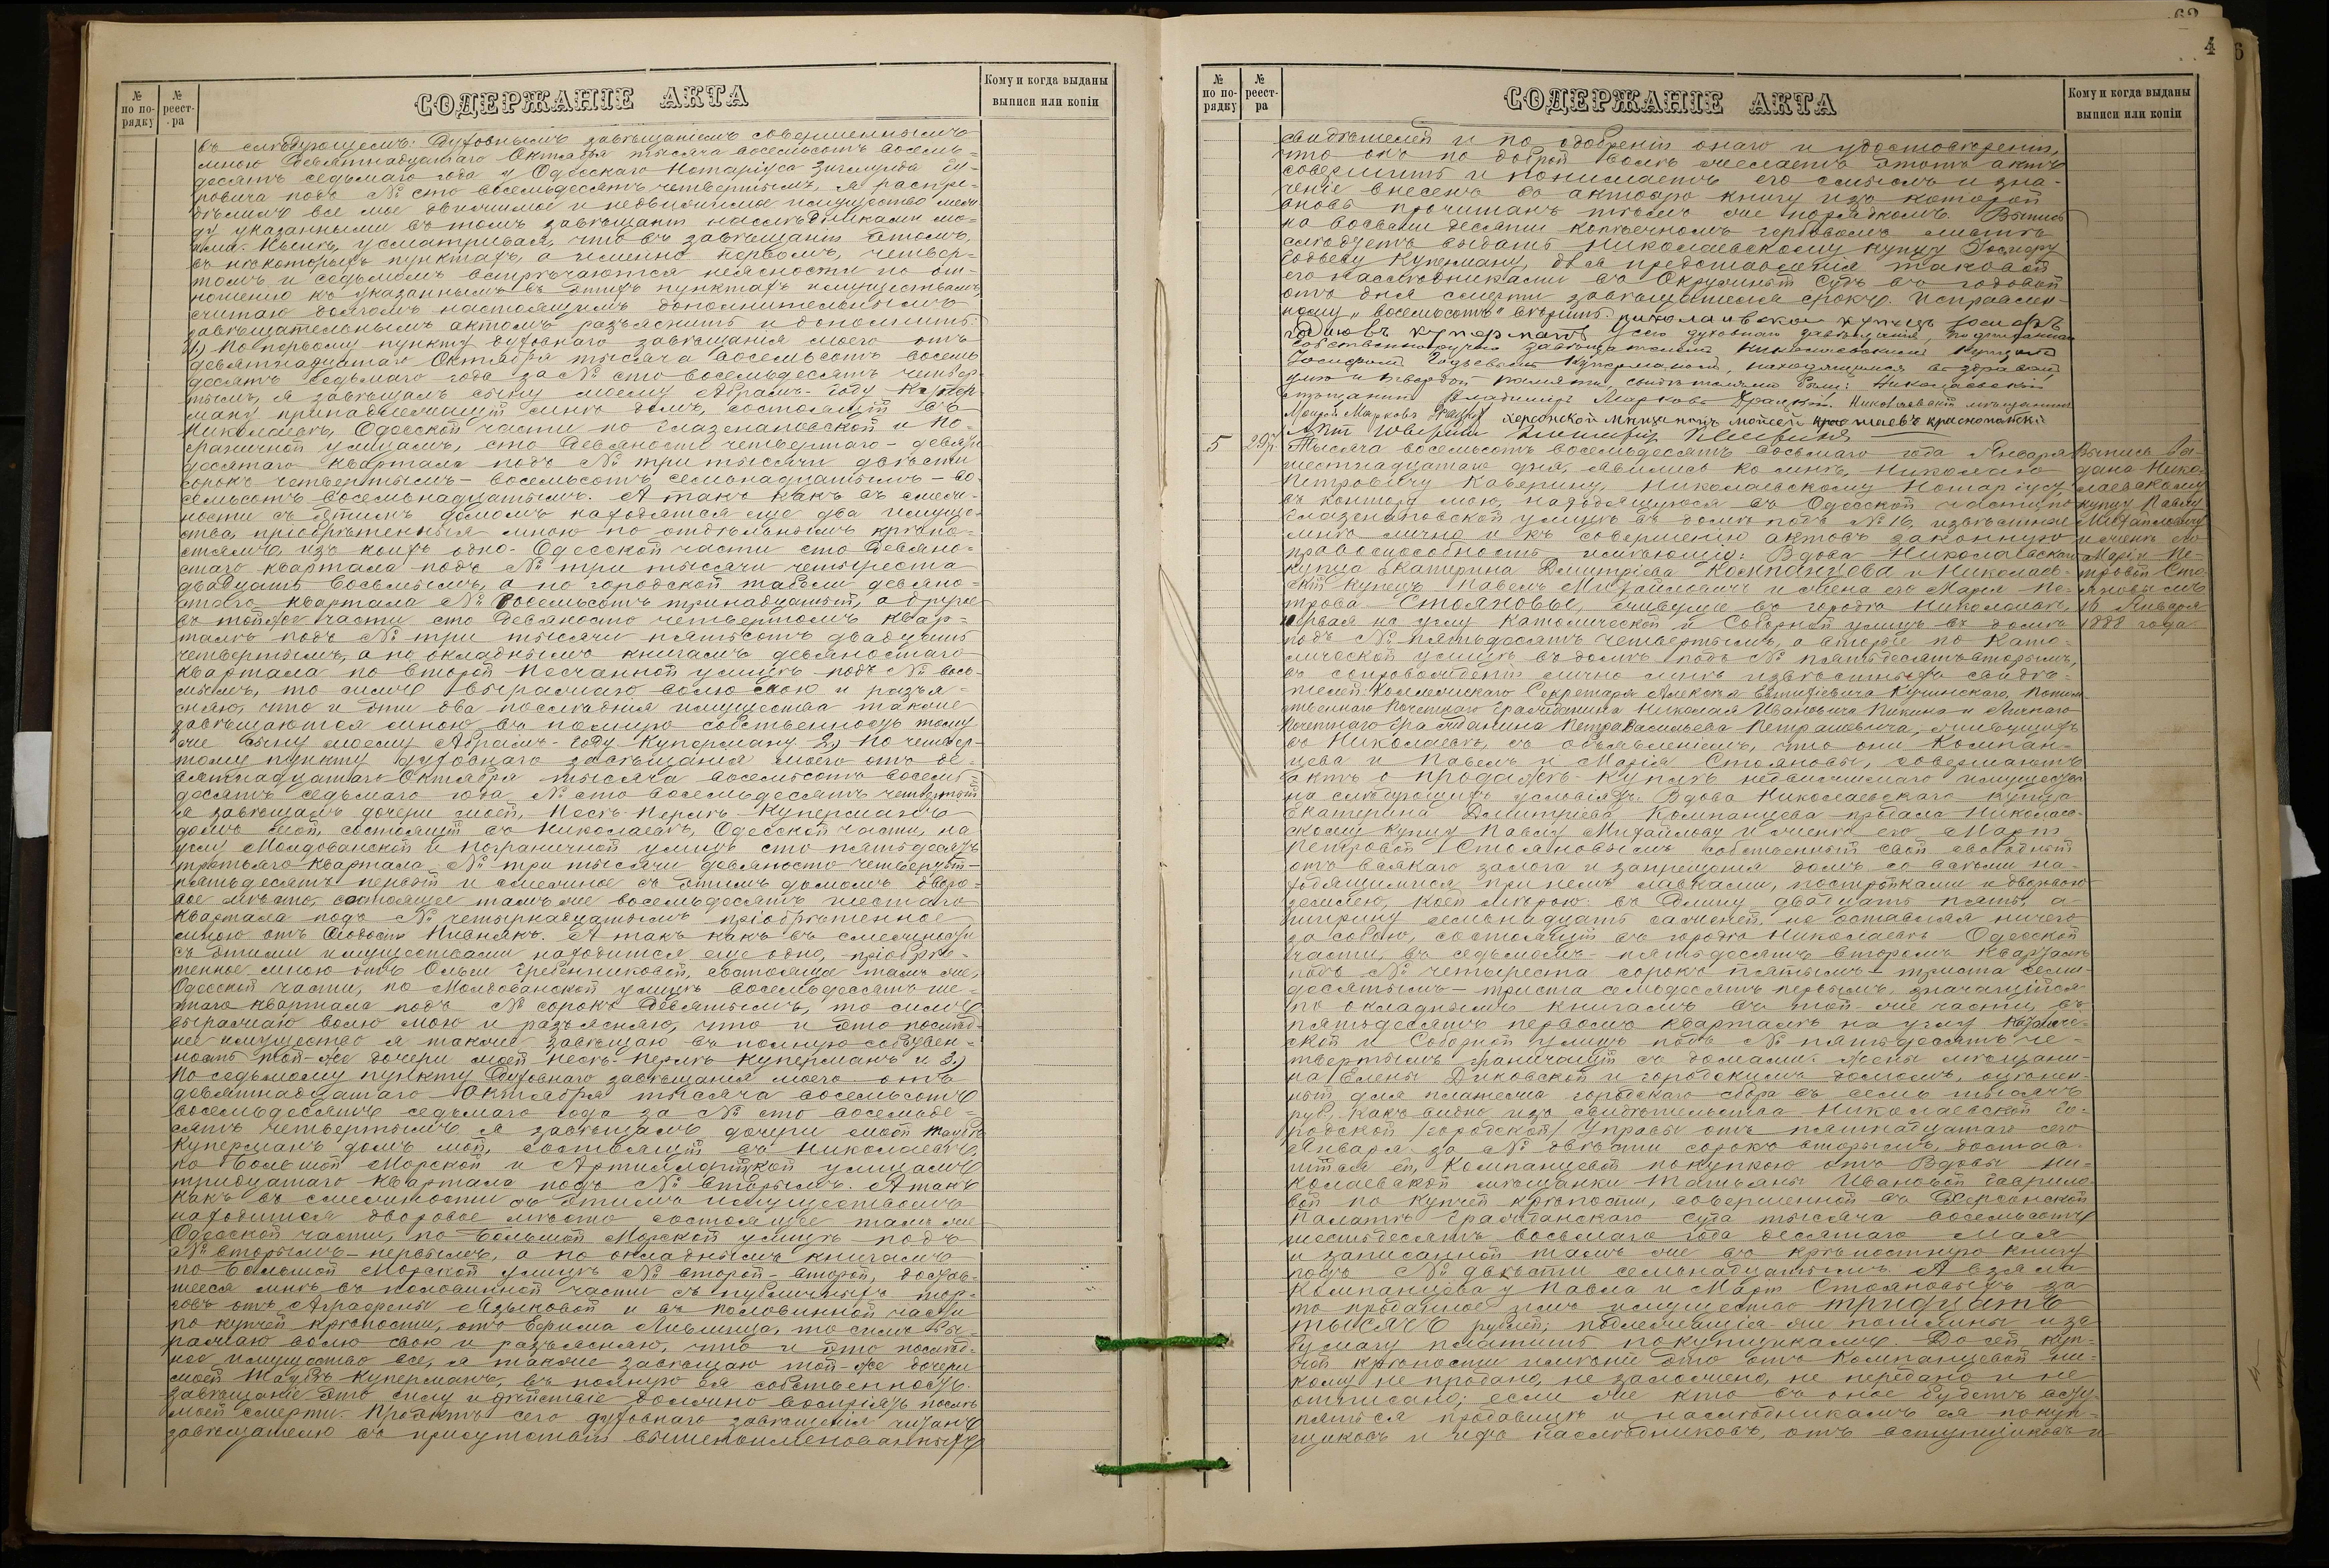 № по по-рядку
№ реест-ра
СОДЕРЖАНІЕ АКТА
Кому и когда выданы выписи или копіи
въ слѣдующемъ: Духовнымъ завѣщаніемъ совершеннымъ
мною девятнадцатаго Октября тысяча восемьсотъ восемь=
десятъ седьмаго года у Одесскаго Нотаріуса Зигмунда Гу-
ровича подъ № сто восемьдесятъ четвертымъ, я распре-
дѣлилъ все мое движимое и недвижимое имущество меж
ду указанными въ томъ завѣщаніи наслѣдниками мо-
ими. Нынѣ, усматривая, что въ завѣщаніи этомъ,
въ нѣкоторыхъ пунктахъ, а именно первомъ, четвер=
томъ и седьмомъ встрѣчаются неясности по от-
ношенію къ указаннымъ въ этихъ пунктахъ имуществамъ,
считаю долгомъ настоящимъ дополнительнымъ
завѣщательнымъ актомъ разъяснить и дополнить:
1) По первому пункту духовнаго завѣщанія моего отъ
девятнадцатаго Октября тысяча восемьсотъ восемь
десятъ седьмаго года за № сто восемьдесятъ четвер-
тымъ, я завѣщалъ сыну моему Абрамъ-Году Купер-
ману принадлежащій мнѣ домъ, состоящій въ
Николаевѣ, Одесской части по Глазенаповской и По-
граничной улицамъ, сто девяносто четвертаго - девяно
десятаго квартала подъ № три тысячи двѣсти
сорокъ четвертымъ - восемьсотъ семнадцатымъ - во-
семьсотъ восемьнадцатымъ. А такъ какъ въ смеж-
ности съ этимъ домомъ находятся еще два имуще-
ства, пріобрѣтенныя мною по отдѣльнымъ крѣпо-
стямъ, изъ коихъ одно - Одесской части сто девяно-
стаго квартала подъ № три тысячи четыреста
двадцать восьмымъ, а по городской табели девяно-
стаго квартала № восемьсотъ тринадцатый, а другое
въ той-же части сто девяносто четвертомъ квар-
талѣ подъ № три тысячи пятьсотъ двадцать
четвертымъ, а по окладнымъ книгамъ девяностаго
квартала по второй Песчанной улицѣ подъ № вось-
мымъ, то симъ выражаю волю свою и разъя-
сняю, что и эти два послѣднія имущества также
завѣщаются мною въ полную собственность тому
же сыну моему Абрамъ-Году Куперману. 2) По четвер-
тому пункту духовнаго завѣщанія моего отъ де-
вятнадцатаго Октября тысяча восемьсотъ восемь
десятъ седьмаго года № сто восемьдесятъ четвертый
я завѣщалъ дочери моей, Несѣ-Перлѣ Куперманъ
домъ мой, состоящій въ Николаевѣ, Одесской части, на
углу Молдованской и Пограничной улицъ сто пятьдесятъ
третьяго квартала № три тысячи девяносто четвертый -
пятьдесятъ первый и смежное съ этимъ домомъ дворо-
вое мѣсто, состоящее тамъ-же восемьдесятъ шестаго
квартала подъ № четырнадцатымъ пріобрѣтенное
мною отъ Ѳеодосіи Пивнякъ. А такъ какъ въ смежности
съ этими имуществами находится еще одно, пріобрѣ-
тенное мною отъ Ольги Гребенниковой, состоящее тамъ-же,
Одесской части, по Молдованской улицѣ восемьдесятъ ше-
стаго квартала подъ № сорокъ девятымъ, то симъ
выражаю волю мою и разъясняю, что и это послѣд-
нее имущество я также завѣщаю въ полную собствен-
ность той-же дочери моей Несѣ-Перлѣ Куперманъ и 3)
По седьмому пункту Духовнаго завѣщанія моего отъ
девятнадцатаго Октября тысяча восемьсотъ
восемьдесятъ седьмаго года за № сто восемьде-
сятъ четвертымъ я завѣщалъ дочери моей Таубѣ
Куперманъ домъ мой, состоящій въ Николаевѣ,
по Большой Морской и Артиллерійской улицамъ
тридцатаго квартала подъ № вторымъ. А такъ
какъ въ смежности съ этимъ имуществомъ
находится дворовое мѣсто состоящее тамъ-же
Одесской части, по Большой Морской улицѣ подъ
№ вторымъ - первымъ, а по окладнымъ книгамъ
по Большой Морской улицѣ № второй - второй, достав-
шееся мнѣ въ половинной части съ публичныхъ тор-
говъ отъ Аграфены Языковой и въ половинной части
по купчей крѣпости, отъ Ефрима Лившица, то симъ вы-
ражаю волю свою и разъясняю, что и это послѣд-
нее имущество все, я также завѣщаю той-же дочери
моей Таубѣ Куперманъ, въ полную ея собственность.
Завѣщаніе это силу и дѣйствіе должно воспріять послѣ
моей смерти. Проэктъ сего духовнаго завѣщанія читанъ
завѣщателю въ присутствіи вышепоименованныхъ
4
№ по по-рядку
№ реест-ра
СОДЕРЖАНІЕ АКТА
Кому и когда выданы выписи или копіи
свидѣтелей и по одобреніи онаго и удостовѣреніи,
что онъ по доброй волѣ желаетъ этотъ актъ
совершить и понимаетъ его смыслъ и зна-
ченіе внесенъ въ актовую книгу изъ которой
вновь прочитанъ тѣмъ же порядкомъ. Выпись
на восьми десяти копѣечномъ гербовомъ листѣ
слѣдуетъ выдать Николаевскому купцу Іосифу
Годьеву Куперману, для представленія таковой
его наслѣдниками въ Окружный Судъ въ годовой
отъ дня смерти завѣщателя срокъ. Исправлен-
ному „восемьсотъ" вѣрить. николаивской купецъ Іосифъ
Гдиовъ Куперманъ У сего духовнаго завѣщанія, подписаннаго
собственноручно завѣщателемъ Николаевскимъ купцомъ
Іосифомъ Годьевымъ Куперманомъ, находящимся въ здравомъ
умѣ и твердой памяти, свидѣтелями были: Николаевскій
мѣщанинъ Владиміръ Марковъ Драцкій. Николаевскій мѣщанинъ
Херсонской Мищанинъ Мойсей
5
297.
Тысяча восемьсотъ восемьдесятъ восьмаго года Января
шестнадцатаго дня, явились ко мнѣ, Николаю
Петровичу Каверину, Николаевскому Нотаріусу
въ контору мою, находящуюся въ Одесской части по
Глазенаповской улицѣ въ домѣ подъ № 16, извѣстные
мнѣ лично и къ совершенію актовъ законную
правоспособность имѣющіе: Вдова Николаевскаго
купца Екатерина Дмитріева Компанцева и Николаев-
скій купецъ Павелъ Михайловичъ и жена его Марія Пе-
трова Стояновы, живущіе въ городѣ Николаевѣ,
первая на углу Католической и Соборной улицъ въ домѣ
подъ № пятьдесятъ четвертымъ, а вторые по Като-
лической улицѣ въ домѣ подъ № пятьдесятъ вторымъ,
въ сопровожденіи лично мнѣ извѣстныхъ свидѣ-
телей: Коллежскаго Секретаря Алексѣя Евтихіевича Кучинскаго, Потом-
ственнаго Почетнаго Гражданина Николая Ивановича Пикина и Личнаго
Почетнаго Гражданина Петра Васильева Петрановича, живущихъ
въ Николаевѣ, съ объявленіемъ, что они Компан-
цева и Павелъ и Марія Стояновы, совершаютъ
актъ о продажѣ-куплѣ недвижимаго имущества
на слѣдующихъ условіяхъ: Вдова Николаевскаго купца
Екатерина Дмитріева Компанцева продала Николаев-
скому купцу Павлу Михайлову и женѣ его Маріи
Петровой Стояновымъ собственный свой свободный
отъ всякаго залога и запрещенія домъ со всѣми на-
ходящимися при немъ лавками, постройками и дворовою
землею, коей мѣрою: въ длину двадцать пять, а
ширину семьнадцать саженей, не оставляя ничего
за собою, состоящій въ городѣ Николаевѣ Одесской
части, въ седьмомъ - пятьдесятъ второмъ кварталѣ
подъ № четыреста сорокъ пятымъ - триста семи-
десятымъ - триста семьдесятъ первымъ, значащійся
по окладнымъ книгамъ въ той-же части, въ
пятьдесятъ первомъ кварталѣ на углу Католиче-
ской и Соборной улицъ подъ № пятьдесятъ че-
твертымъ граничащій съ домами: жены мѣщани-
на Елены Диковской и городскимъ домомъ, оцѣнен-
ный для платежа городскаго сбора въ семь тысячъ
руб., какъ видно изъ свидѣтельства Николаевской Го-
родской /городской/ Управы отъ пятнадцатаго сего
Января за № двѣсти сорокъ вторымъ, достав-
шійся ей, Компанцевой покупкою отъ Вдовы Ни-
колаевской мѣщанки Татьяны Ивановой Гаврило-
вой по купчей крѣпости, совершенной въ Херсонской
Палатѣ Гражданскаго Суда тысяча восемьсотъ
шестьдесятъ восьмаго года десятаго Мая
и записанной тамъ же въ крѣпостную книгу
подъ № двѣсти семьнадцатымъ. А взяла
Компанцева у Павла и Маріи Стояновыхъ за
то проданное имъ имущество тридцать
тысячъ рублей; подлежащія-же пошлины и за
бумагу платить покупщикамъ. До сей куп-
чей крѣпости имѣніе это отъ Компанцевой ни-
кому не продано, не заложено, не передано и не
отписано; если же кто въ оное будетъ всту-
паться продавицѣ и наслѣдникамъ ея покуп-
щиковъ и ихъ наслѣдниковъ, отъ вступщиковъ и
Выпись вы-
дана Нико-
лаевскому
купцу Павлу
Михайловичу
и женѣ его
Маріи Пе-
тровой Сто-
яновымъ
16 Января
1888 года